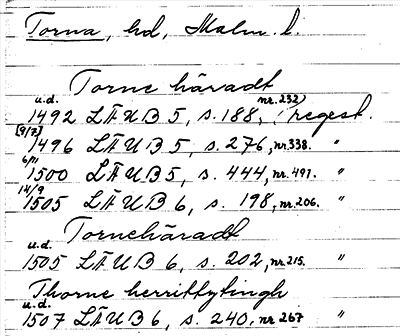 Torna, hd, Malm. l.
Torne häradt
u.d.
1492 LÄUB 5, s. 188, nr. 232) regest.
[9/7]
1496 LÄUB 5, s. 276, nr. 338. "
6/11
1500 LÄUB 5, s. 444, nr. 491. "
14/9
1505 LÄUB 6, s. 198, nr. 206. "
Tornehäradt
u.d.
1505 LÄUB 6, s. 202, nr. 215. "
Thorne herrittztingh
u.d.
1507 LÄUB 6, s. 240, nr. 267 "